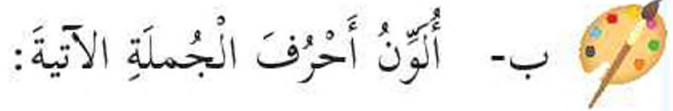 ب- أُلَوِّنُ أَحْرُفَ الْجُملَةِ الآتيةَ: